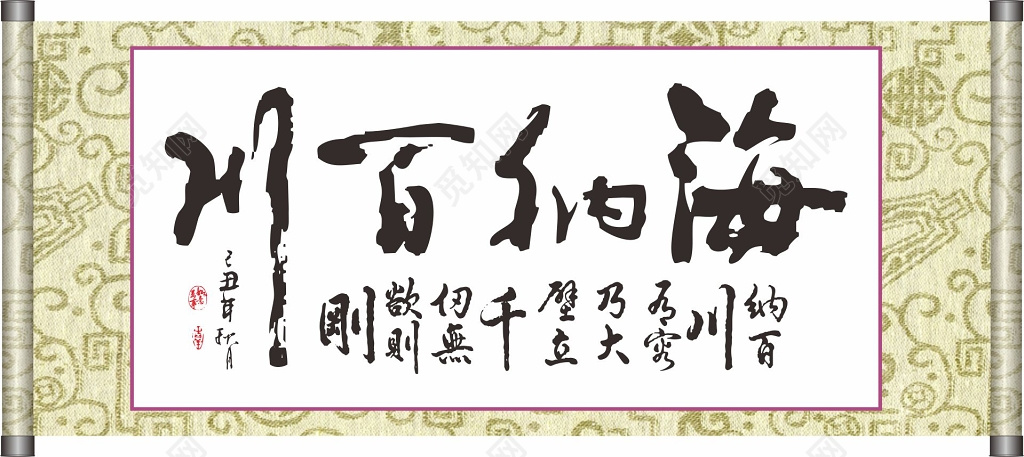 海纳百川
纳百
川
有容
乃大
壁立
千
仞無
欲則
剛
己丑年秋月
觅知网